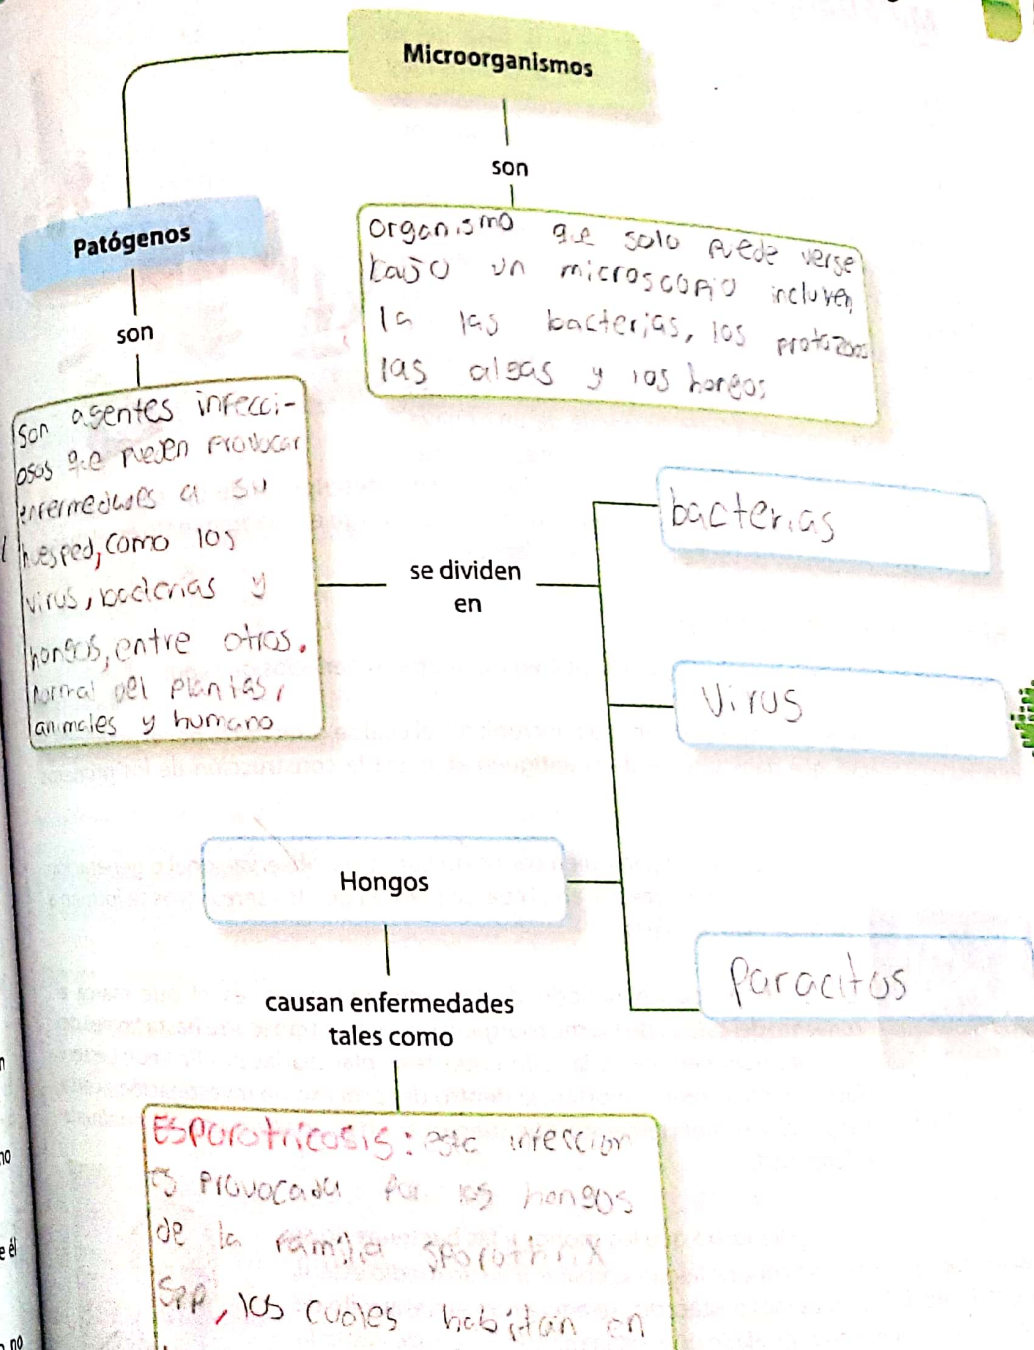 Microorganismos
son
organismo que solo puede verse
bajo un microscopio incluyen
la las bacterias, los protozoos
las algas y los hongos
Patógenos
son
son agentes infecci-
osos que pueden provocar
enfermedades a su
huesped, como los
virus, bacterias y
hongos, entre otros.
normal del plantas,
animales y humano
se dividen
en
bacterias
Virus
Hongos
Paracitos
causan enfermedades
tales como
Esporotricosis: esta infeccion
es provocada por los hongos
de la familia sporothrix
spp, los cuales habitan en